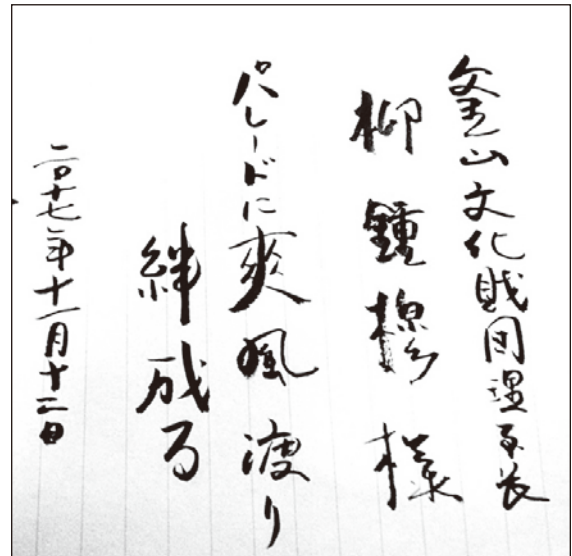 釜山文化財団理事長
柳鍾穆様
パレードに爽風渡り
絆成る
二〇十七年十一月十二日